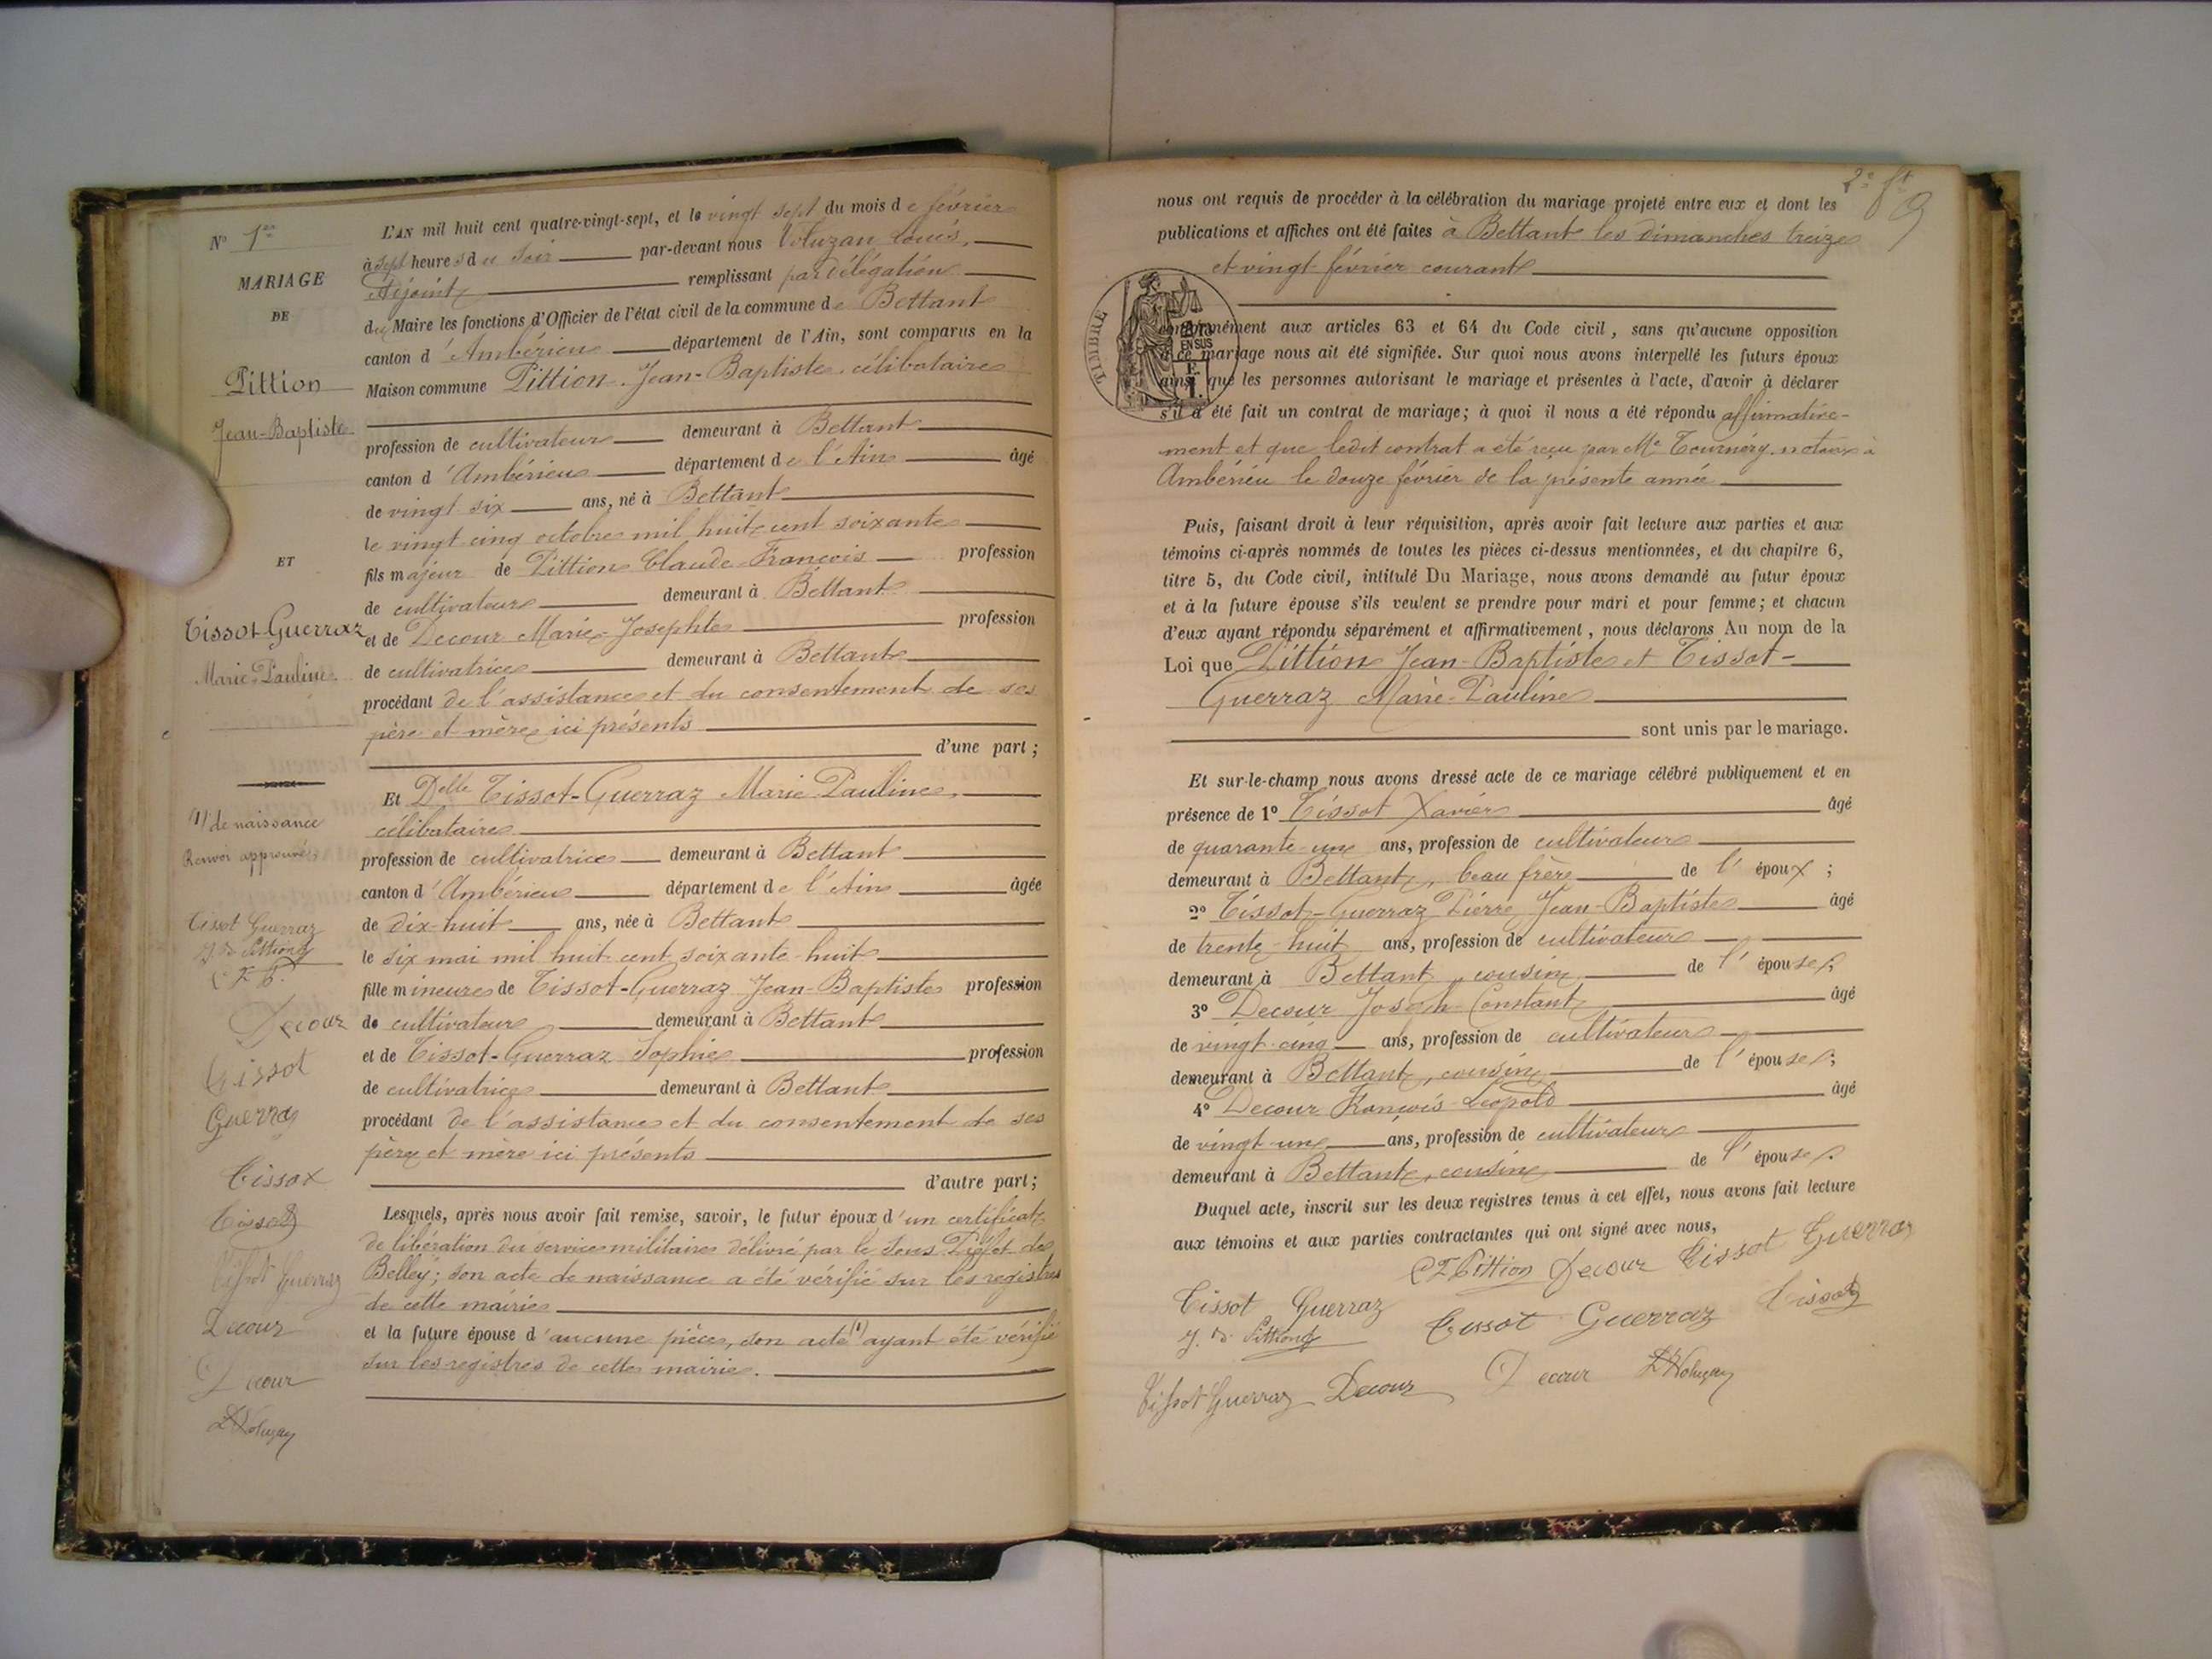 N° 1er
MARIAGE
DE
Pittion
Jean-Baptiste
ET
Tissot-Guerraz
Marie-Pauline
1) de naissance
Renvoi approuvé
Tissot Guerraz
J. B. Pittion
Decour
Tissot
Guerraz
Tissot
Tissot
Tissot Guerraz
Decour
Decour
L Voluzan
L'AN mil huit cent quatre-vingt-sept, et le vingt sept du mois de février
à sept heures du soir par-devant nous Voluzan Louis,
Adjoint remplissant par délégation
du Maire les fonctions d'Officier de l'état civil de la commune de Bettant
canton d'Ambérieu département de l'Ain, sont comparus en la
Maison commune Pittion Jean-Baptiste, célibataire
profession de cultivateur demeurant à Bettant
canton d'Ambérieu département de l'Ain âgé
de vingt six ans, né à Bettant
le vingt cinq octobre mil huit cent soixante
fils majeur de Pittion Claude-François profession
de cultivateur demeurant à Bettant
et de Decour Marie-Josephte profession
de cultivatrice demeurant à Bettant
procédant de l'assistance et du consentement de ses
père et mère ici présents
d'une part ;
Et Delle Tissot-Guerraz Marie Pauline,
célibataire
profession de cultivatrice demeurant à Bettant
canton d'Ambérieu département de l'Ain âgée
de dix-huit ans, née à Bettant
le six mai mil huit cent soixante-huit
fille mineure de Tissot-Guerraz Jean-Baptiste profession
de cultivateur demeurant à Bettant
et de Tissot-Guerraz Sophie profession
de cultivatrice demeurant à Bettant
procédant de l'assistance et du consentement de ses
père et mère ici présents
d'autre part ;
Lesquels, après nous avoir fait remise, savoir, le futur époux d'un certificat
de libération du service militaire délivré par le Sous Préfet de
Belley ; son acte de naissance a été vérifié sur les registres
de cette mairie
et la future épouse d'aucune pièce, son acte (1) ayant été vérifié
sur les registres de cette mairie.
2e ft
9
nous ont requis de procéder à la célébration du mariage projeté entre eux et dont les
publications et affiches ont été faites à Bettant les dimanches treize
et vingt février courant
TIMBRE
EN SUS
conformément aux articles 63 et 64 du Code civil, sans qu'aucune opposition
à ce mariage nous ait été signifiée. Sur quoi nous avons interpellé les futurs époux
ainsi que les personnes autorisant le mariage et présentes à l'acte, d'avoir à déclarer
s'il a été fait un contrat de mariage ; à quoi il nous a été répondu affirmative-
ment et que ledit contrat a été reçu par Me Tournéry notaire à
Ambérieu le douze février de la présente année
Puis, faisant droit à leur réquisition, après avoir fait lecture aux parties et aux
témoins ci-après nommés de toutes les pièces ci-dessus mentionnées, et du chapitre 6,
titre 5, du Code civil, intitulé Du Mariage, nous avons demandé au futur époux
et à la future épouse s'ils veulent se prendre pour mari et pour femme ; et chacun
d'eux ayant répondu séparément et affirmativement, nous déclarons Au nom de la
Loi que Pittion Jean-Baptiste et Tissot-
Guerraz Marie-Pauline
sont unis par le mariage.
Et sur-le-champ nous avons dressé acte de ce mariage célébré publiquement et en
présence de 1° Tissot Xavier âgé
de quarante-une ans, profession de cultivateur
demeurant à Bettant, beau frère de l'époux ;
2° Tissot-Guerraz Pierre Jean-Baptiste âgé
de trente-huit ans, profession de cultivateur
demeurant à Bettant, cousin de l'épouse ;
3° Decour Joseph Constant âgé
de vingt-cinq ans, profession de cultivateur
demeurant à Bettant, cousin de l'épouse ;
4° Decour François Léopold âgé
de vingt-une ans, profession de cultivateur
demeurant à Bettant, cousin de l'épouse.
Duquel acte, inscrit sur les deux registres tenus à cet effet, nous avons fait lecture
aux témoins et aux parties contractantes qui ont signé avec nous,
C F Pittion Decour Tissot Guerraz
Tissot Guerraz
J. B. Pittion Tissot Guerraz Tissot
Tissot Guerraz Decour Decour L Voluzan